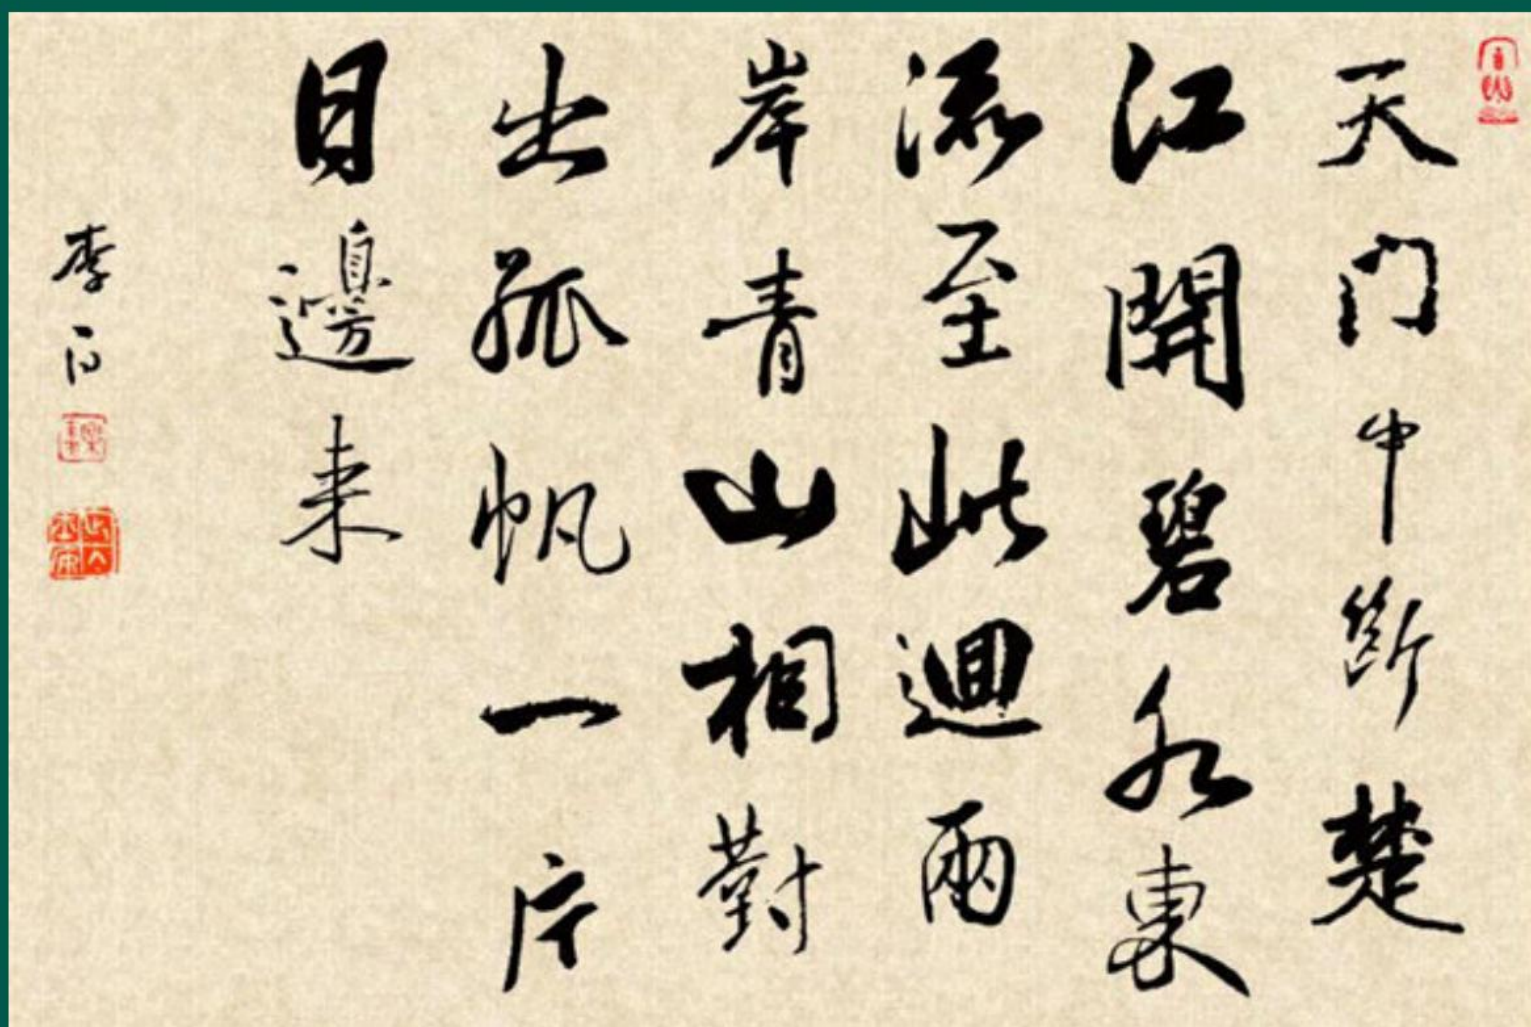 天门中斷楚
江開碧水東
流至此迴兩
岸青山相對
出孤帆一片
日邊来
李白